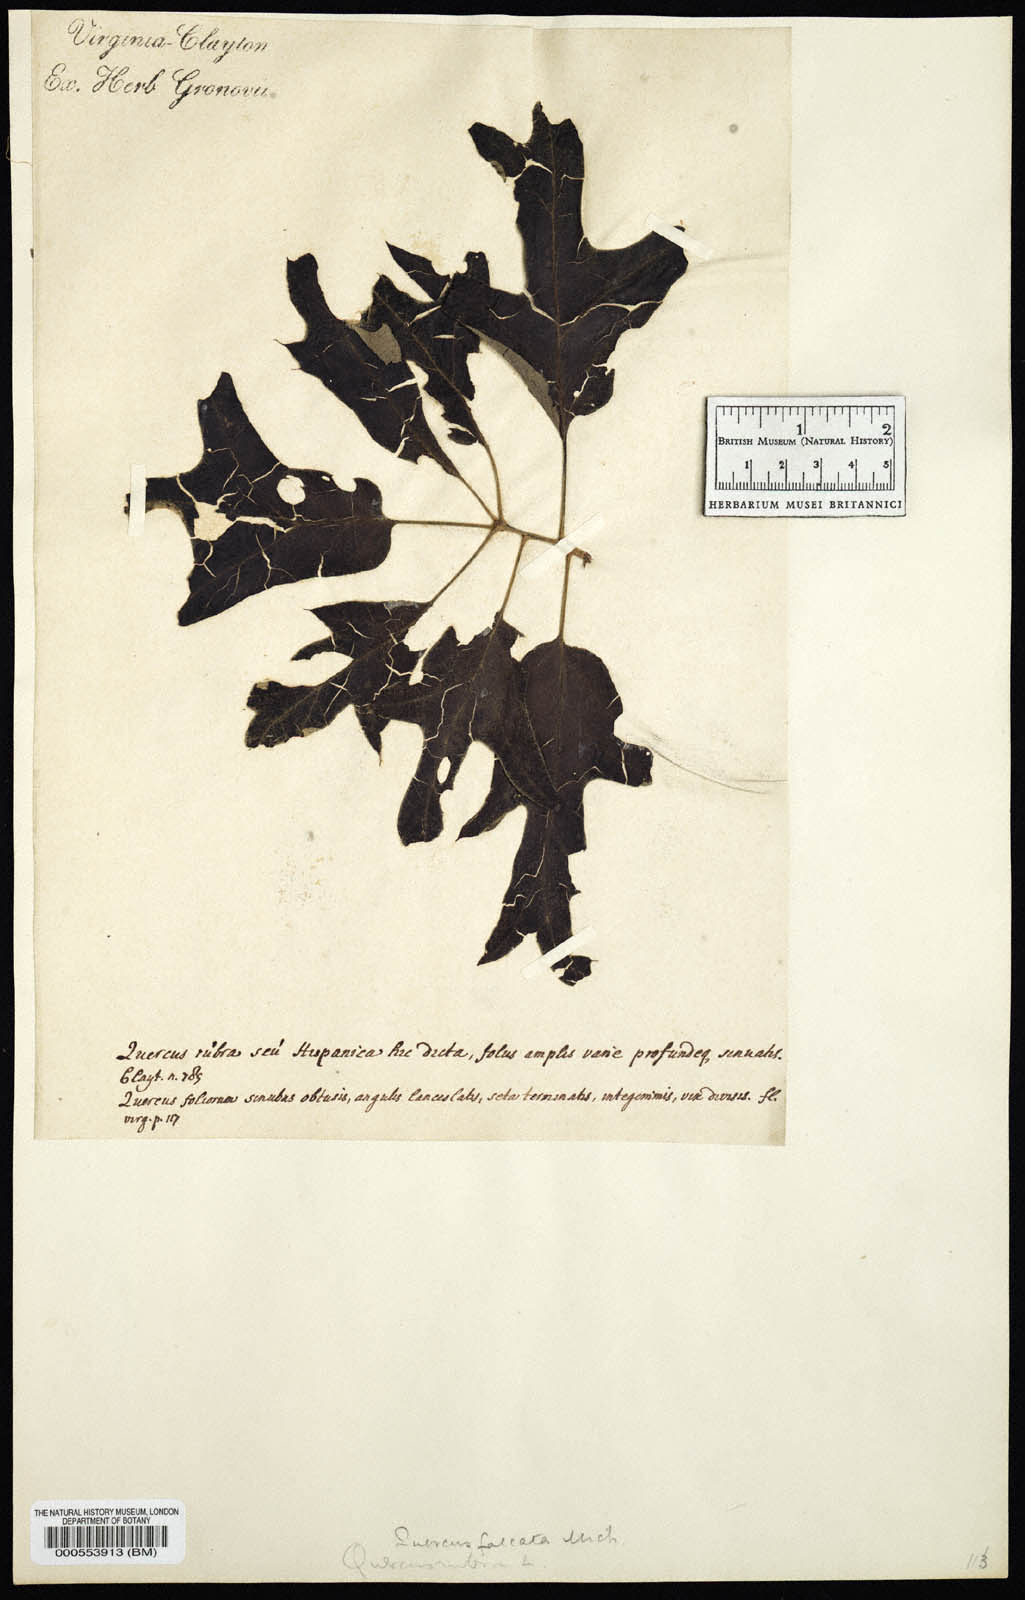 Virginia-Clayton
Ex. Herb Gronovii.
1 2
BRITISH MUSEUM (NATURAL HISTORY)
1 2 3 4 5
HERBARIUM MUSEI BRITANNICI
Quercus rubra seu Hispanica hic dicta, foliis amplis varie profundeq sinuatis.
Clayt. n. 785
Quercus foliorum sinubus obtusis, angulis lanceolatis, seta terminatis, integerrimis, vix divisis. fl.
virg. p. 117
THE NATURAL HISTORY MUSEUM, LONDON
DEPARTMENT OF BOTANY
000553913 (BM)
Quercus falcata Mich
Quercus rubra L.